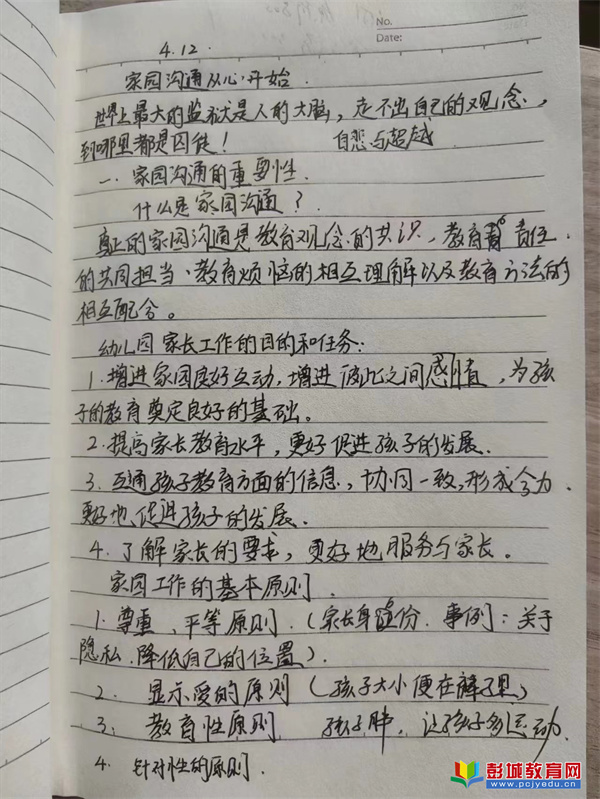 No.
Date:
4.12.
家园沟通从心开始.
世界上最大的监狱是人的大脑，走不出自己的观念，
到哪里都是囚徒！ 自恋与超越
一、家园沟通的重要性.
什么是家园沟通？
真正的家园沟通是教育观念的共识，教育责任
的共同担当、教育烦恼的相互理解以及教育方法的
相互配合。
幼儿园家长工作的目的和任务：
1.增进家园良好互动，增进彼此之间感情，为孩
子的教育奠定良好的基础。
2.提高家长教育水平，更好促进孩子的发展.
3.互通孩子教育方面的信息，协同一致,形成合力.
更好地促进孩子的发展.
4.了解家长的要求，更好地服务与家长。
家园工作的基本原则.
1.尊重、平等原则.（家长身份.事例：关于
隐私.降低自己的位置）.
2. 显示爱的原则（孩子大小便在裤子里）
3. 教育性原则. 孩子胖，让孩子多运动.
4. 针对性的原则.
彭城教育网
www.pcjyedu.com